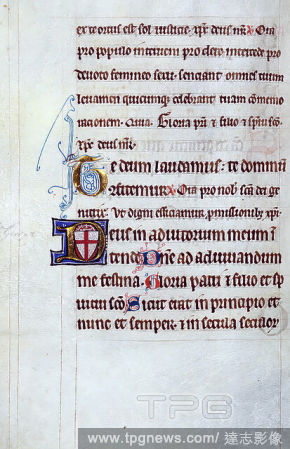 ex te ortus est sol iusticie. xp̄c deus nr̄. Ora
pro populo interueni pro clero intercede pro
deuoto femineo sexu. senciant omnes tuum
leuamen quicumq; celebrant tuam cōmemo
racionem. Gloria pr̄i ⁊ filio ⁊ spūi scō.
xp̄c deus nr̄.
Te deum laudamus. te dominū
confitemur. Ora pro nob̄. scā dei ge
nitrix. Vt digni efficiamur. pmissionib; xp̄i.
Deus in adiutorium meum ī
tende. Dn̄e ad adiuuandum
me festina. Gloria patri ⁊ filio et sp̄
ritui scō. Sicut erat in principio et
nunc et semper. ⁊ in secula seculor̄
TPG
www.tpgnews.com/ 達志影像